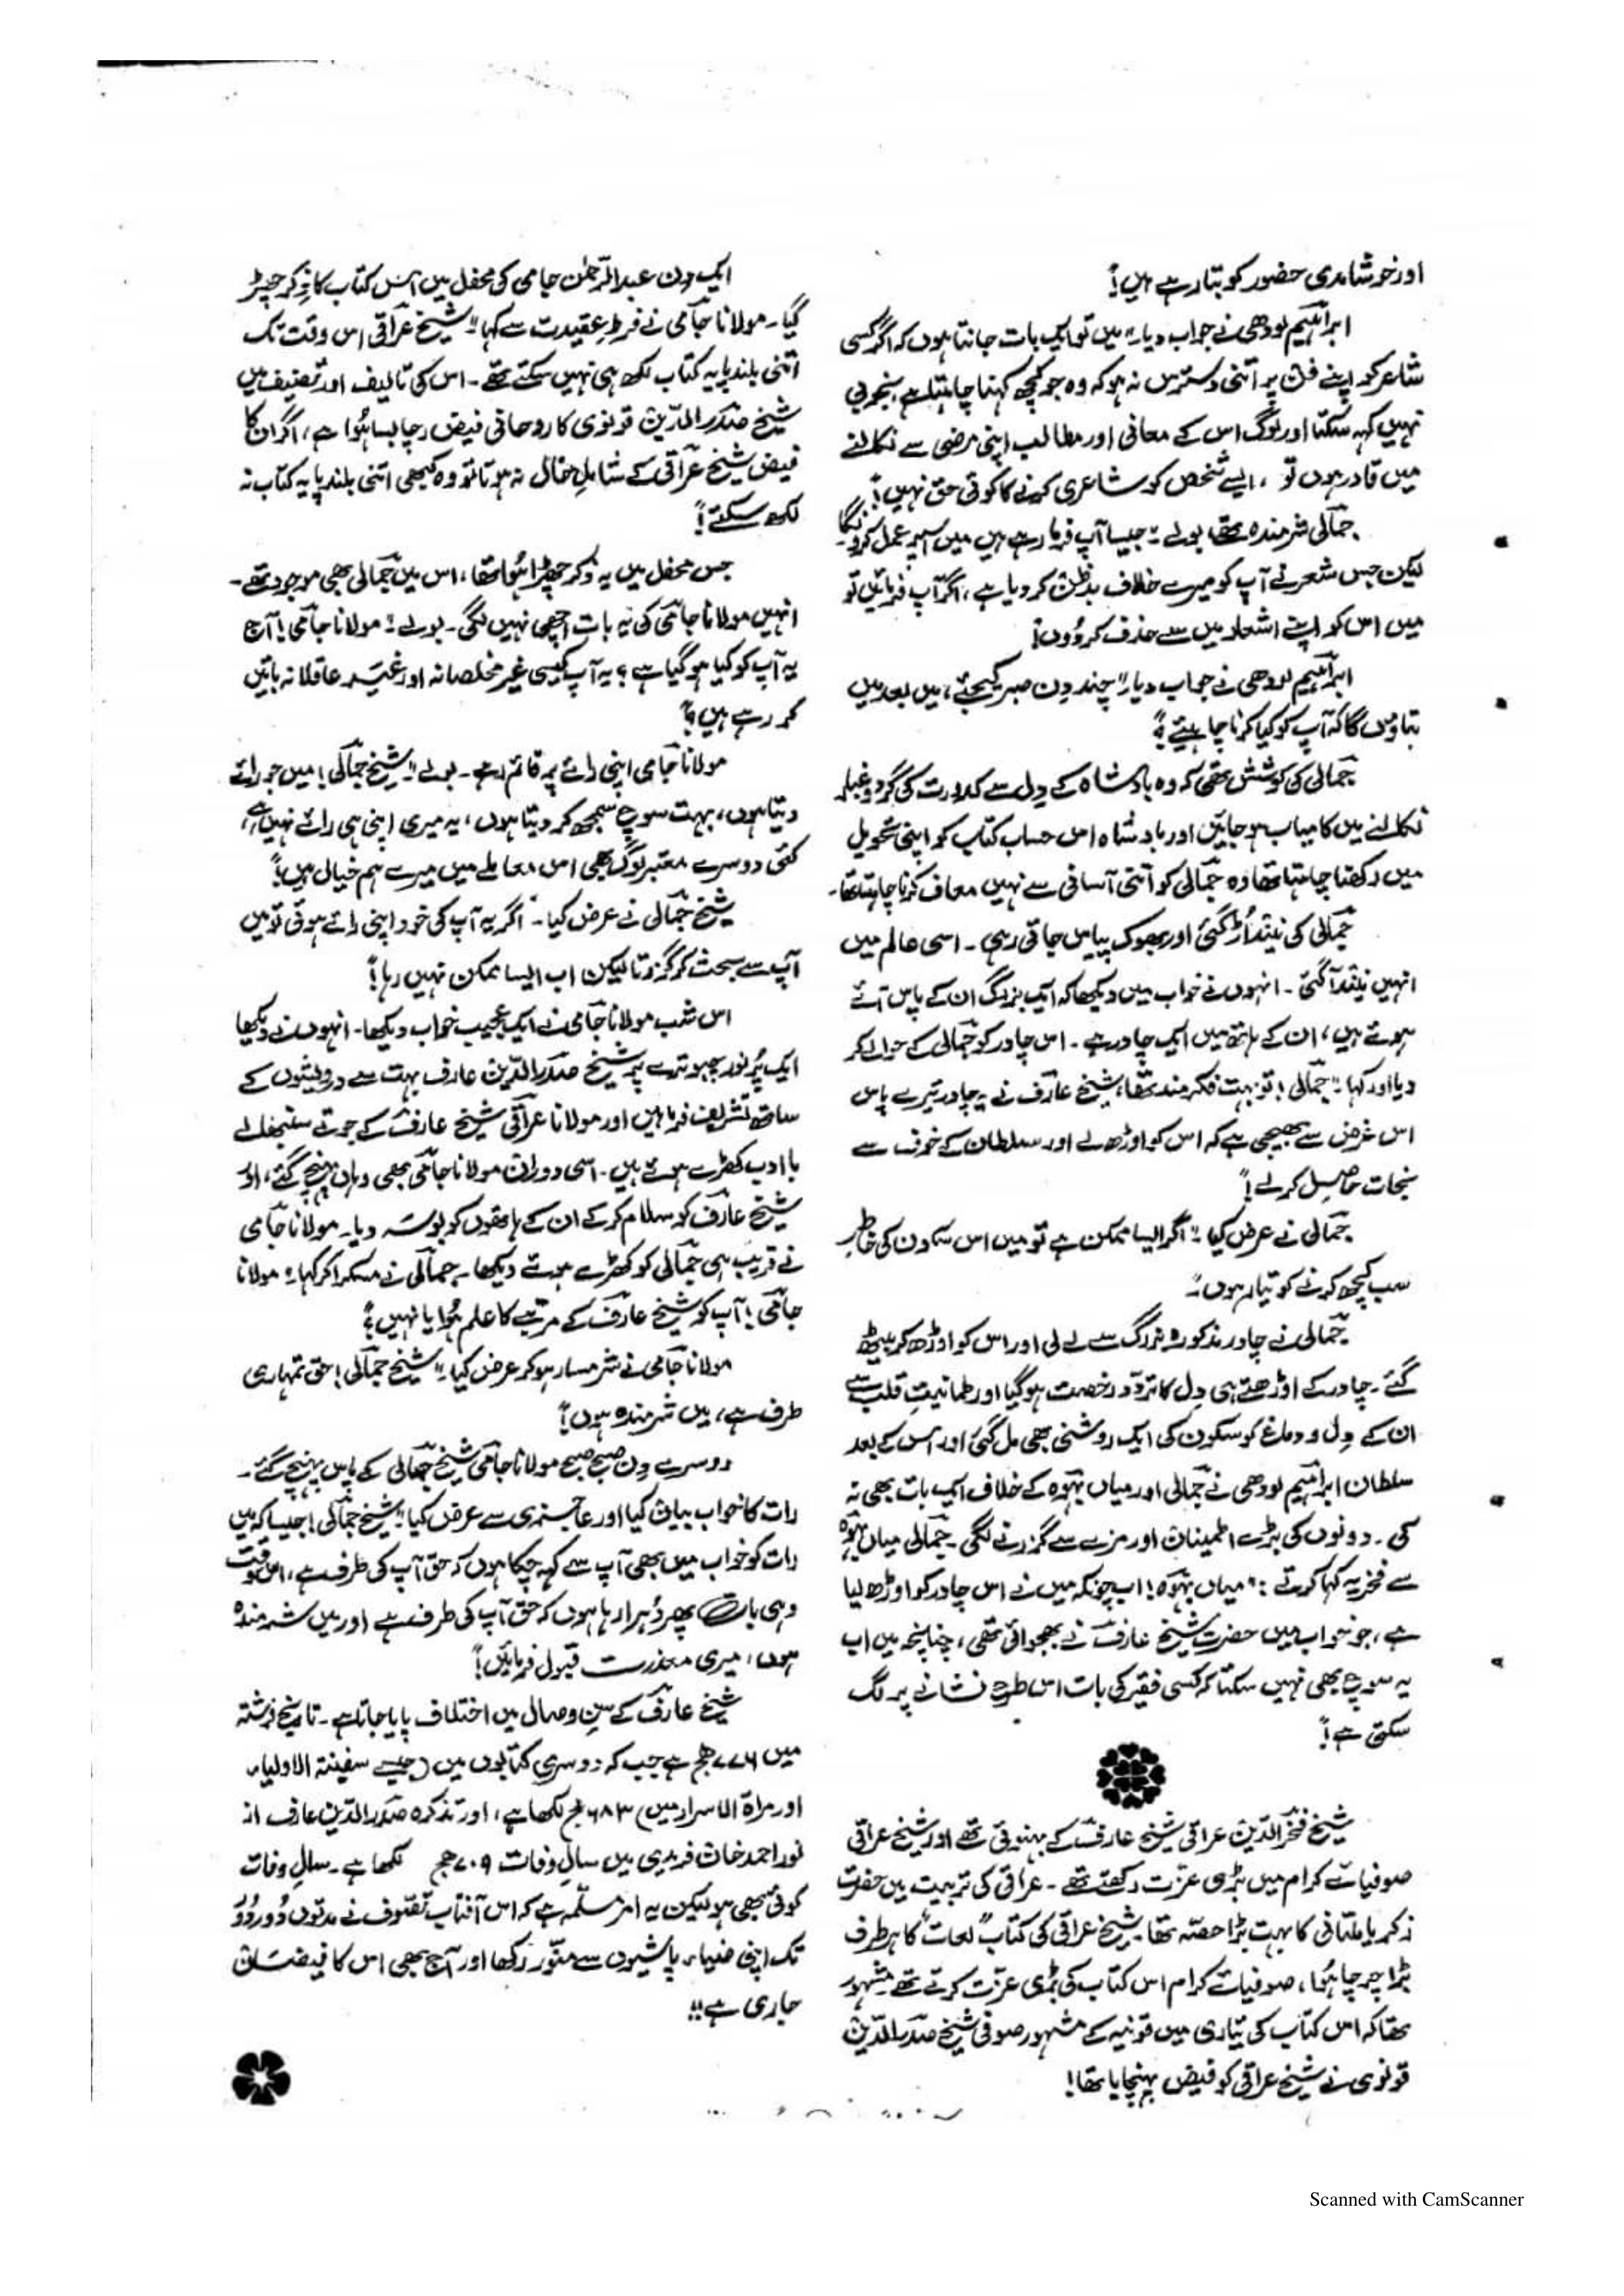 اور خوشامدی حضور کو بتا رہے ہیں!
ابراہیم لودھی نے جواب دیا۔ "میں تو ایک بات جانتا ہوں کہ اگر کسی
شاعر کو اپنے فن پر اتنی دسترس نہ ہو کہ وہ جو کچھ کہنا چاہتا ہے، بخوبی
نہیں کہہ سکتا اور لوگ اس کے معانی اور مطالب اپنی مرضی سے نکالنے
میں قادر ہوں تو، ایسے شخص کو شاعری کرنے کا کوئی حق نہیں!"
جمالی شرمندہ تھے بولے۔ "جیسا آپ فرما رہے ہیں میں اسپر عمل کروں گا۔
لیکن جس شعر نے آپ کو میرے خلاف بدظن کر دیا ہے، اگر آپ فرمائیں تو
میں اس کو اپنے اشعار میں سے حذف کر دوں!
ابراہیم لودھی نے جواب دیا۔ "چند دن صبر کیجئے، میں بعد میں
بتاؤں گا کہ آپ کو کیا کرنا چاہیئے؟"
جمالی کی کوشش تھی کہ وہ بادشاہ کے دِل سے کدورت کی گرد و غبار
نکالنے میں کامیاب ہو جائیں اور بادشاہ اس حساب کتاب کو اپنی تحویل
میں رکھنا چاہتا تھا وہ جمالی کو اتنی آسانی سے نہیں معاف کرنا چاہتا تھا۔
جمالی کی نیند اُڑ گئی اور بھوک پیاس جاتی رہی۔ اسی عالم میں
انہیں نیند آ گئی۔ انہوں نے خواب میں دیکھا کہ ایک بزرگ ان کے پاس آئے
ہوئے ہیں، ان کے ہاتھ میں ایک چادر ہے۔ اس چادر کو جمالی کے حوالے کر
دیا اور کہا۔ "جمالی! تو بہت فکر مند تھا، شیخ عارف نے یہ چادر تیرے پاس
اس غرض سے بھیجی ہے کہ اس کو اوڑھ لے اور سلطان کے خوف سے
نجات حاصِل کر لے!"
جمالی نے عرض کیا۔ "اگر ایسا ممکن ہے تو میں اس سکون کی خاطر
سب کچھ کرنے کو تیار ہوں۔"
جمالی نے چادر مذکورہ بزرگ سے لے لی اور اس کو اوڑھ کر بیٹھ
گئے۔ چادر کے اوڑھتے ہی دِل کا تردّد رخصت ہو گیا اور طمانیتِ قلب سے
ان کے دِل و دماغ کو سکون کی ایک روشنی بھی مل گئی اور اس کے بعد
سلطان ابراہیم لودھی نے جمالی اور میاں بہوہ کے خلاف ایک بات بھی نہ
کی۔ دونوں کی بڑے اطمینان اور مزے سے گزرنے لگی۔ جمالی میاں بہوہ
سے فخریہ کہا کرتے: "میاں بہوہ! اب چونکہ میں نے اس چادر کو اوڑھ لیا
ہے، جو خواب میں حضرت شیخ عارف نے بھجوائی تھی، چنانچہ میں اب
یہ سوچ بھی نہیں سکتا کہ کسی فقیر کی بات اس طرح نشانے پر لگ
سکتی ہے!"
شیخ فخرالدین عراقی شیخ عارف کے بہنوئی تھے اور شیخ عراقی
صوفیائے کرام میں بڑی عزت رکھتے تھے۔ عراقی کی تربیت میں حضرت
زکریا ملتانی کا بہت بڑا حصّہ تھا۔ شیخ عراقی کی کتاب "لمعات" کا ہر طرف
بڑا چرچا ہُوا، صوفیائے کرام اس کتاب کی بڑی عزّت کرتے تھے۔ مشہور
تھا کہ اس کتاب کی تیاری میں قونیہ کے مشہور صوفی شیخ صدرالدّین
قونوی نے شیخ عراقی کو فیض پہنچایا تھا!
ایک دن عبدالرّحمٰن جامی کی محفل میں اس کتاب کا ذِکر چھڑ
گیا۔ مولانا جامی نے فرطِ عقیدت سے کہا۔ "شیخ عراقی اس وقت تک
اتنی بلند پایہ کتاب لکھ ہی نہیں سکتے تھے۔ اس کی تالیف اور تصنیف میں
شیخ صدرالدّین قونوی کا روحانی فیض رچا بسا ہُوا ہے، اگر ان کا
فیض شیخ عراقی کے شاملِ حال نہ ہوتا تو وہ کبھی اتنی بلند پایہ کتاب نہ
لکھ سکتے!"
جس محفل میں یہ ذکر چھڑا ہُوا تھا، اس میں جمالی بھی موجود تھے۔
انہیں مولانا جامی کی یہ بات اچھی نہیں لگی۔ بولے۔ "مولانا جامی! آج
یہ آپ کو کیا ہو گیا ہے؟ یہ آپ کیسی غیر مخلصانہ اور غیر عاقلانہ باتیں
کر رہے ہیں؟"
مولانا جامی اپنی رائے پر قائم رہے۔ بولے۔ "شیخ جمالی! میں جو رائے
دیتا ہوں، بہت سوچ سمجھ کر دیتا ہوں، یہ میری اپنی ہی رائے نہیں ہے،
کئی دوسرے معتبر لوگ بھی اس معاملے میں میرے ہم خیال ہیں!"
شیخ جمالی نے عرض کیا۔ "اگر یہ آپ کی خود اپنی رائے ہوتی تو میں
آپ سے بحث کر گزرتا لیکن اب ایسا ممکن نہیں رہا!"
اس شب مولانا جامی نے ایک عجیب خواب دیکھا۔ انہوں نے دیکھا
ایک پُرنور چبوترے پر شیخ صدرالدّین عارف بہت سے درویشوں کے
ساتھ تشریف فرما ہیں اور مولانا عراقی شیخ عارف کے جوتے سنبھالے
باادب کھڑے ہوئے ہیں۔ اسی دوران مولانا جامی بھی وہاں پہنچ گئے، اور
شیخ عارف کو سلام کر کے ان کے ہاتھوں کو بوسہ دیا۔ مولانا جامی
نے قریب ہی جمالی کو کھڑے ہوئے دیکھا۔ جمالی نے مسکرا کر کہا۔ "مولانا
جامی! آپ کو شیخ عارف کے مرتبے کا علم ہُوا یا نہیں؟"
مولانا جامی نے شرمسار ہو کر عرض کیا۔ "شیخ جمالی! حق تمہاری
طرف ہے، میں شرمندہ ہوں!"
دوسرے دِن صبح صبح مولانا جامی شیخ جمالی کے پاس پہنچ گئے۔
رات کا خواب بیان کیا اور عاجزی سے عرض کیا۔ "شیخ جمالی! جیسا کہ میں
رات کو خواب میں بھی آپ سے کہہ چکا ہوں کہ حق آپ کی طرف ہے، اس وقت
وہی بات پھر دُہرا رہا ہوں کہ حق آپ کی طرف ہے اور میں شرمندہ
ہوں، میری معذرت قبول فرمائیں!"
شیخ عارف کے سنِ وصال میں اختلاف پایا جاتا ہے۔ تاریخ فرشتہ
میں ۷۷۶ ھج ہے جب کہ دوسری کتابوں میں (جیسے سفینۃ الاولیاء
اور مراۃ الاسرار میں) ۶۸۳ ھج لکھا ہے، اور تذکرہ صدرالدّین عارف از
نور احمد خان فریدی میں سالِ وفات ۷۰۹ ھج لکھا ہے۔ سالِ وفات
کوئی بھی ہو لیکن یہ امر مسلّمہ ہے کہ اس آفتابِ تصّوف نے مدتوں دُور دُور
تک اپنی ضیاء پاشیوں سے منّور رکھا اور آج بھی اس کا فیضان
جاری ہے!!
Scanned with CamScanner